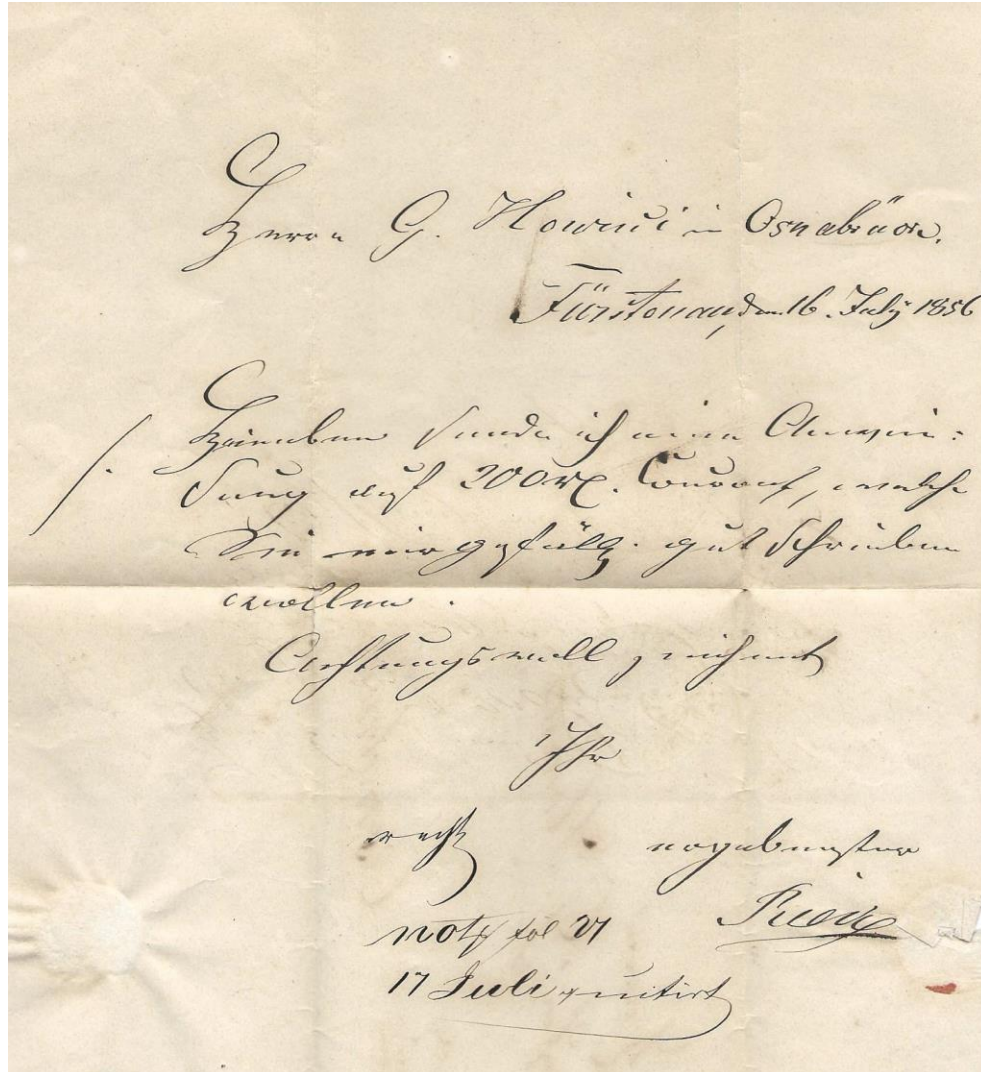 Herrn G. in Osnabrück.
Fürstenau, den 16. July 1856
Hierneben sende ich eine Anwei:
sung auf 200 rℓ. Courant, welche
Sie mir gefällg. gut schreiben
wollen.
Achtungsvoll zeichnet
Ihr
ergebenster
not fol 27
17 Juli quitirt